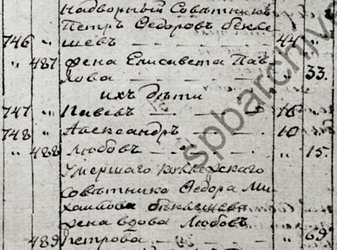 Надворный Совѣтникъ
Петръ Ѳедоровъ
746 " шевъ — — — 44
" 487 жена Елисавета Пав
лова — — — " 33.
ихъ дѣти
747 " Павелъ — — — 16 "
748 " Александръ — — 10 "
" 488 Любовь — — — " 15.
Умершаго Коллежскаго
Совѣтника Ѳедора Ми
хайлова
жена вдова Любовь
" 489 Петрова — — " 69.
spbarchives